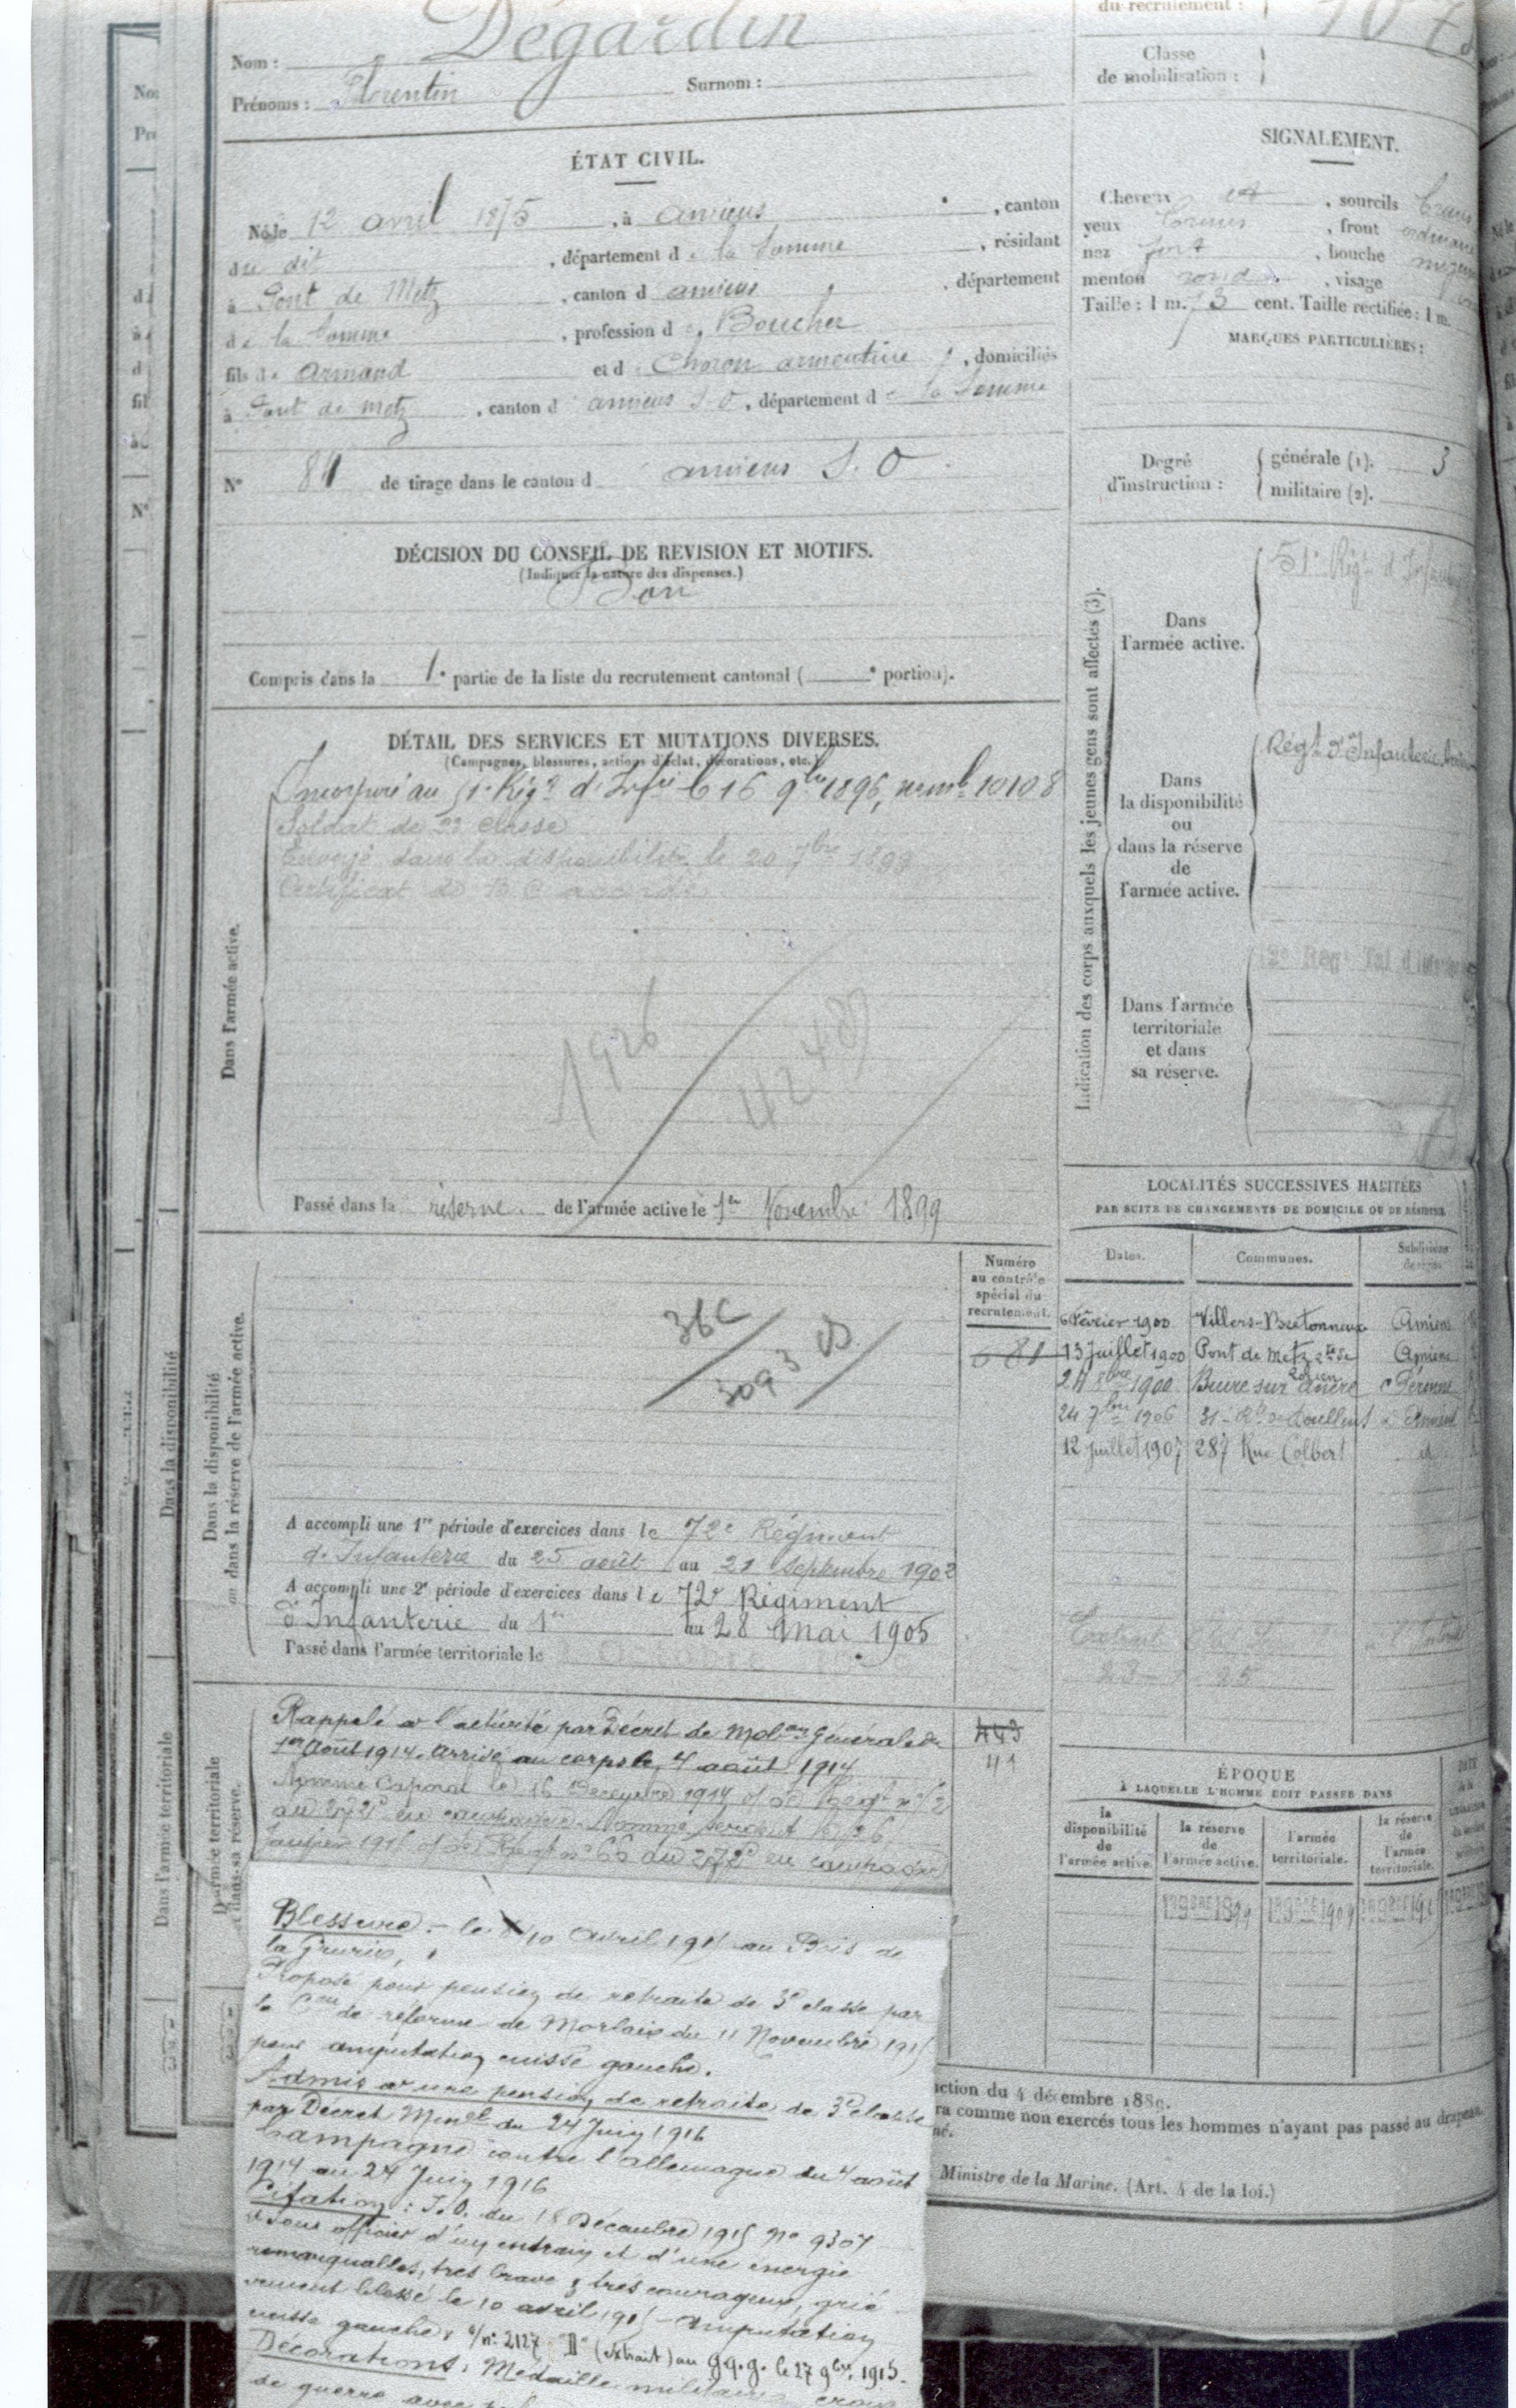 du recrutement :
Nom : Dégardin
Prénoms : Florentin Surnom :
Classe
de mobilisation :
ÉTAT CIVIL.
Né le 12 avril 1875, à Amiens, canton
du dit, département de la Somme, résidant
à Pont de Metz, canton d amiens, département
de la Somme, profession de Boucher
fils de Armand et de Choron armentine, domiciliés
à Pont de Metz, canton d amiens S. O, département de la Somme
N° 81 de tirage dans le canton d amiens S. O.
DÉCISION DU CONSEIL DE REVISION ET MOTIFS.
(Indiquer la nature des dispenses.)
Bon
Compris dans la 1e partie de la liste du recrutement cantonal ( e portion).
SIGNALEMENT.
Cheveux et, sourcils
yeux bruns, front ordinaire
nez fort, bouche moyenne
menton rond, visage
Taille : 1 m. 73 cent. Taille rectifiée : 1 m.
MARQUES PARTICULIÈRES :
Degré
d'instruction :
générale (1). 3
militaire (2).
DÉTAIL DES SERVICES ET MUTATIONS DIVERSES.
(Campagnes, blessures, actions d'éclat, décorations, etc.)
Dans l'armée active.
Incorporé au 51e Régt d'Infie le 16 9bre 1896, numle 10108
Soldat de 2e classe
Envoyé dans la disponibilité le 20 7bre 1899
Certificat de B C accordé
1926
4248
Passé dans la réserve de l'armée active le 1er Novembre 1899
Indication des corps auxquels les jeunes gens sont affectés (3).
Dans
l'armée active.
51e Régt d'Infanterie
Dans
la disponibilité
ou
dans la réserve
de
l'armée active.
Régt d'Infanterie
Dans l'armée
territoriale
et dans
sa réserve.
Régt Tal d'Infanterie
Dans la disponibilité
ou dans la réserve de l'armée active.
Numéro
au contrôle
spécial du
recrutement.
681
36C
3093
A accompli une 1re période d'exercices dans le 72e Régiment
d'Infanterie du 25 août au 21 Septembre 1902
A accompli une 2e période d'exercices dans le 72e Régiment
d'Infanterie du 1er au 28 Mai 1905
Passé dans l'armée territoriale le Octobre
LOCALITÉS SUCCESSIVES HABITÉES
PAR SUITE DE CHANGEMENTS DE DOMICILE OU DE RÉSIDENCE
Dates. Communes. Subdivisions de région
6 Février 1900 Villers-Bretonneux Amiens
13 Juillet 1900 Pont de Metz Amiens
1900 Buire sur Ancre Péronne
24 7bre 1906 31 Rte de Doullens Amiens
12 juillet 1907 287 Rue Colbert d
l'armée territoriale
et dans sa réserve.
Rappelé à l'activité par Décret de Mobon Générale du
1er Août 1914. Arrivé au corps le 4 août 1914
Nommé Caporal le 16 Décembre 1914 o/ de Régt n° 2
du 272e en campagne. Nommé sergent le 26
Janvier 1915 o/ de Régt n° 66 du 272e en campagne
443
41
ÉPOQUE
À LAQUELLE L'HOMME DOIT PASSER DANS
la
disponibilité
de
l'armée active.
la réserve
de
l'armée active.
l'armée
territoriale.
la réserve
de
l'armée
territoriale.
Blessure. - le 10 avril 1915 au Bois de
la Grurie,
Proposé pour pension de retraite de 3e classe par
la Con de réforme de Morlaix du 11 Novembre 1915
pour amputation cuisse gauche.
Admis à une pension de retraite de 3e classe
par Décret Minel du 24 Juin 1916
Campagne contre l'allemagne du 4 août
1914 au 24 Juin 1916
Citation : J.O. du 18 Décembre 1915 n° 9307
Sous officier d'un entrain et d'une énergie
remarquables, très brave & très courageux, griè-
vement blessé le 10 avril 1915 - Amputation
cuisse gauche, o/n° 2127 "D" (extrait) au G.Q.G. le 27 9bre 1915.
Décorations : Médaille militaire, croix
de guerre avec
ction du 4 décembre 1889.
ra comme non exercés tous les hommes n'ayant pas passé au drapeau
né.
Ministre de la Marine. (Art. 4 de la loi.)
Dans la disponibilité
Dans l'armée territoriale